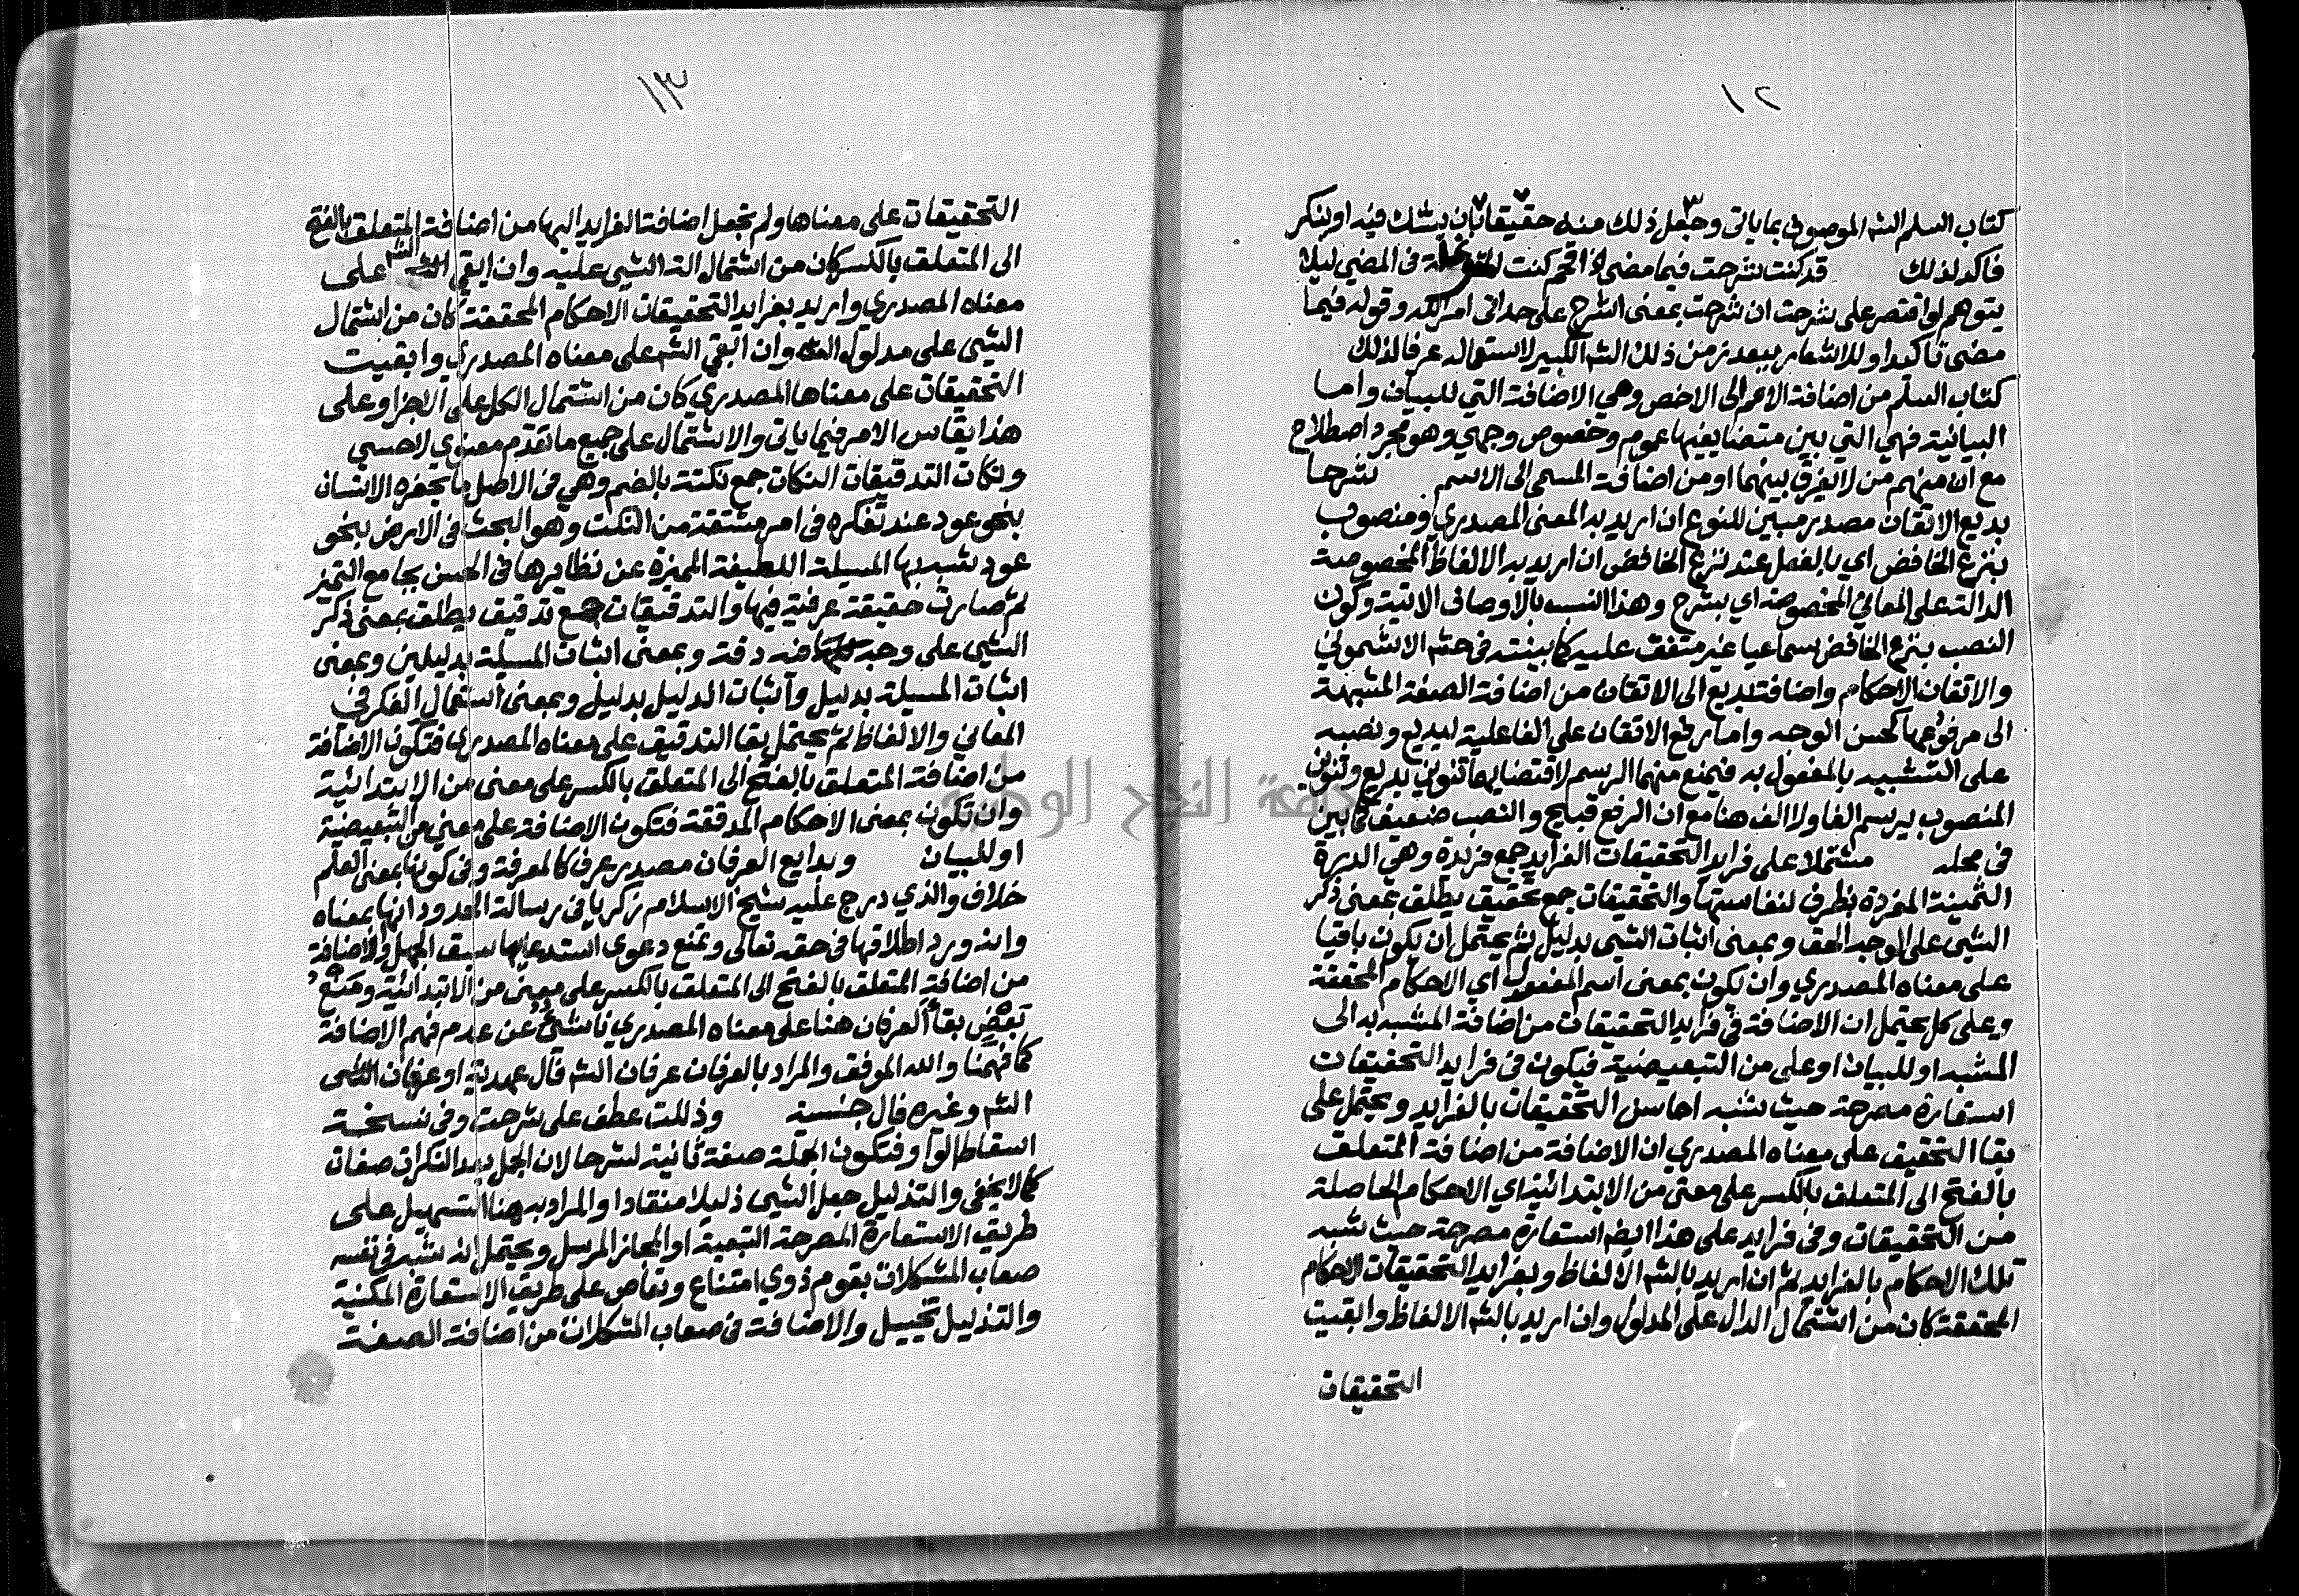 ١٢
كتاب السلم الشر الموصوف بما ياتى وجعل ذلك منه حقيقا بان يشك فيه او ينكر
فاكد لذلك قد كنت شرحت فيما مضى اذا قحم كنت في المضي ليلا
يتوهم لو اقتصر على شرحت ان شرحت بمعنى اشرح على حد اتى امر الله وقوله فيما
مضى تاكيدا وللاشعار ببعد زمن ذلك الشر الكبير لاستعماله عرفا لذلك
كتاب السلم من اضافة الاعم الى الاخص وهي الاضافة التي للبيان واما
البيانية فهي التي بين متضايفيها عموم وخصوص وجهي وهو مجرد اصطلاح
مع ان منهم من لا يفرق بينهما او من اضافة المسمى الى الاسم شرحا
بديع الاتقان مصدر مبين للنوع ان اريد به المعنى المصدري ومنصوب
بنزع الخافض اي بالفعل عند نزع الخافض ان اريد به الالفاظ المخصوصة
الدالة على المعاني المخصوصة اي بشرح وهذا انسب بالاوصاف الاتية وكون
النصب بنزع الخافض سماعيا غير متفق عليه كما بينته في حشر الاشموني
والاتقان الاحكام واضافة بديع الى الاتقان من اضافة الصفة المشبهة
الى مرفوعها كحسن الوجه واما رفع الاتقان على الفاعلية لبديع ونصبه
على التشبيه بالمفعول به فيمنع منهما الرسم لاقتضايهما تنوين بديع وتنوين
المنصوب يرسم الفا ولا الف هنا مع ان الرفع قبيح والنصب ضعيف كما بين
في محله مشتملا على فرايد التحقيقات الفرايد جمع فريدة وهي الدرة
الثمينة المفردة بظرف لنفاستها والتحقيقات جمع تحقيق يطلق بمعنى ذكر
الشي على الوجه الحق وبمعنى اثبات الشي بدليل ثم يحتمل ان يكون باقيا
على معناه المصدري وان يكون بمعنى اسم المفعول اي الاحكام المحققة
وعلى كل يحتمل ان الاضافة في فرايد التحقيقات من اضافة المشبه به الى
المشبه او للبيان او على من التبعيضية فيكون في فرايد التحقيقات
استعارة مصرحة حيث شبه احاسن التحقيقات بالفرايد ويحتمل على
بقا التحقيق على معناه المصدري ان الاضافة من اضافة المتعلق
بالفتح الى المتعلق بالكسر على معنى من الابتدائية اي الاحكام الحاصلة
من التحقيقات وفي فرايد على هذا ايضا استعارة مصرحة حيث شبه
تلك الاحكام بالفرايد ثم ان اريد بالشر الالفاظ وبفرايد التحقيقات الاحكام
المحققة كان من اشتمال الدال على المدلول وان اريد بالشر الالفاظ وابقيت
التحقيقات
١٣
التحقيقات على معناها ولم تجعل اضافة الفرايد اليها من اضافة المتعلق بالفتح
الى المتعلق بالكسر كان من اشتمال الة الشي عليه وان ابقي الشر على
معناه المصدري واريد بفرايد التحقيقات الاحكام المحققة كان من اشتمال
الشي على مدلول الته وان ابقي الشر على معناه المصدري وابقيت
التحقيقات على معناها المصدري كان من اشتمال الكل على الاجزا وعلى
هذا يقاس الامر فيما ياتى والاشتمال على جميع ما تقدم معنوي لا حسي
ونكات التدقيقات النكات جمع نكتة بالضم وهي في الاصل ما يحفره الانسان
بنحو عود عند تفكره في امر مشتقة من النكت وهو البحث في الارض بنحو
عود شبه بها المسيلة اللطيفة المميزة عن نظايرها في الحسن بجامع التميز
ثم صارت حقيقة عرفية فيها والتدقيقات جمع تدقيق يطلق بمعنى ذكر
الشي على وجه فيه دقة وبمعنى اثبات المسيلة بدليلين وبمعنى
اثبات المسيلة بدليل واثبات الدليل بدليل وبمعنى استعمال الفكر في
المعاني والالفاظ ثم يحتمل بقا التدقيق على معناه المصدري فتكون الاضافة
من اضافة المتعلق بالفتح الى المتعلق بالكسر على معنى من الابتدائية
وان تكون بمعنى الاحكام المدققة فتكون الاضافة على معنى من التبعيضية
او للبيان وبدايع العرفان مصدر عرف كالمعرفة وفي كونها بمعنى العلم
خلاف والذي درج عليه شيخ الاسلام زكريا في رسالة الحدود انها بمعناه
وانه ورد اطلاقها في حقه تعالى ومنع دعوى استدعايها سبق الجهل والاضافة
من اضافة المتعلق بالفتح الى المتعلق بالكسر على معنى من الابتدائية ومنع
بعض بقا العرفان هنا على معناه المصدري ناشئ عن عدم فهم الاضافة
كما فهمنا والله الموفق والمراد بالعرفان عرفان الشر فال عهدية او عرفان
الشر وغيره فال جنسية وذللت عطف على شرحت وفي نسخة
اسقاط الواو فتكون الجملة صفة ثانية لشرحا لان الجمل بعد النكرات صفات
كما لا يخفى والتذليل جعل الشي ذليلا منقادا والمراد به هنا التسهيل على
طريق الاستعارة المصرحة التبعية او المجاز المرسل ويحتمل انه شبه في نفسه
صعاب المشكلات بقوم ذوي امتناع وتعاص على طريق الاستعارة المكنية
والتذليل تخييل والاضافة في صعاب المشكلات من اضافة الصفة
جامعة النجاح الوطنية